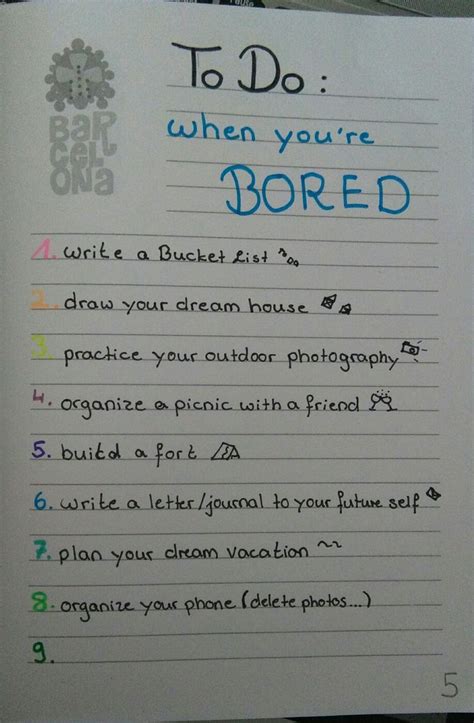 BAR
CEL
ONA
To Do:
when you're
BORED
1. write a Bucket List
2. draw your dream house
3. practice your outdoor photography
4. organize a picnic with a friend
5. build a fort
6. write a letter/journal to your future self
7. plan your dream vacation
8. organize your phone (delete photos...)
9.
5